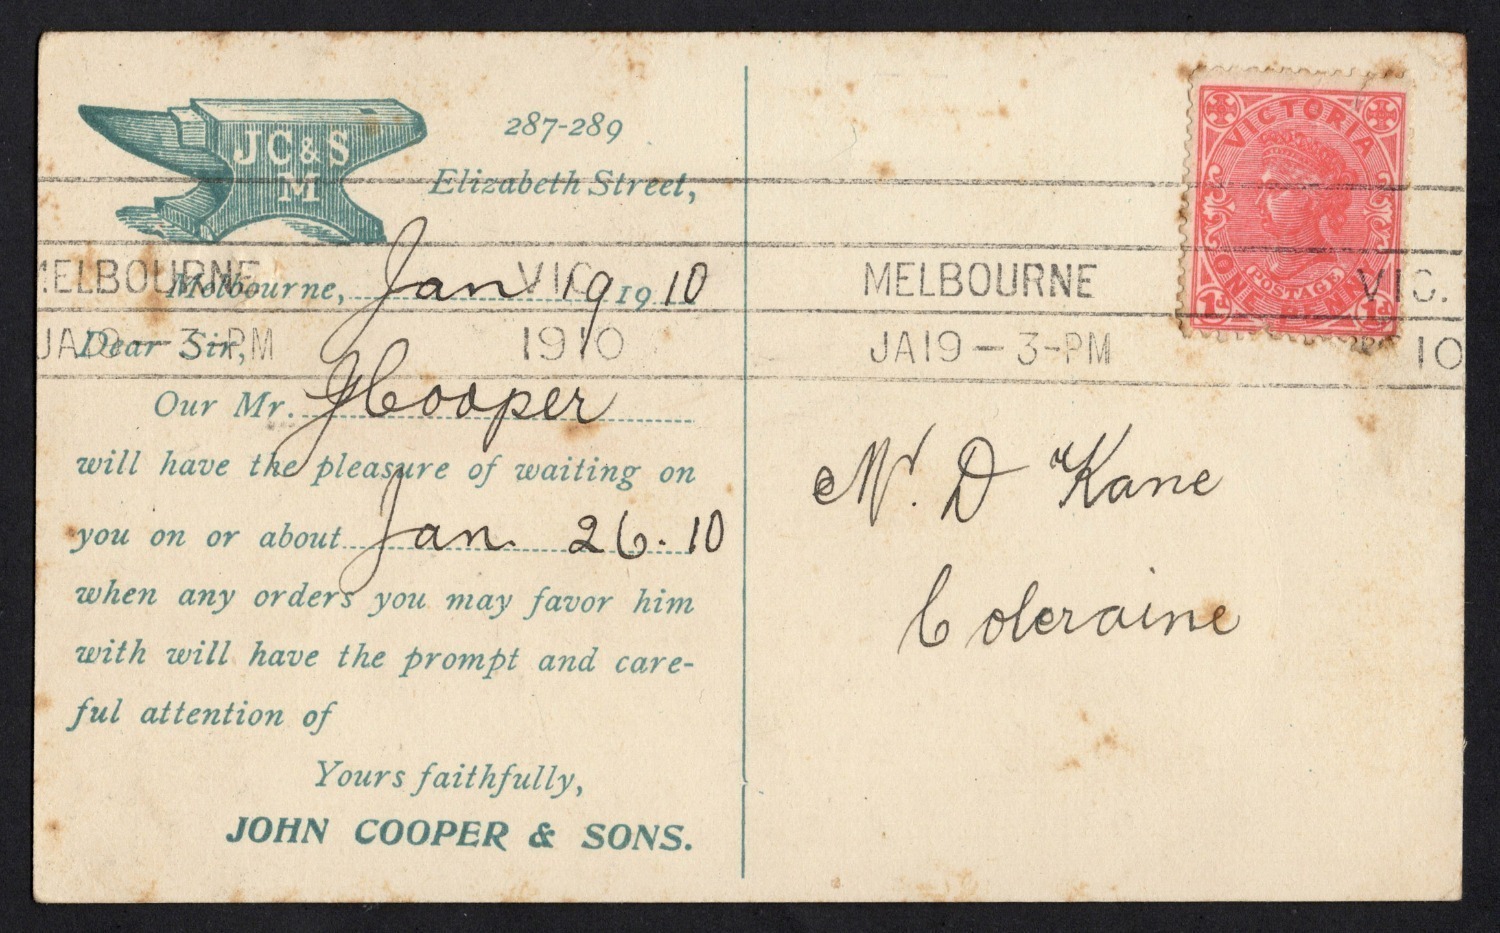 JC&S
M
287-289
Elizabeth Street,
Melbourne, Jan 19 1910
Dear Sir,
Our Mr. J Cooper
will have the pleasure of waiting on
you on or about Jan. 26.10
when any orders you may favor him
with will have the prompt and care-
ful attention of
Yours faithfully,
JOHN COOPER & SONS.
MELBOURNE VIC.
JA19-3-PM 1910
MELBOURNE VIC.
JA19-3-PM 10
VICTORIA
POSTAGE
ONE PENNY
1d 1d
Mr. D Kane
Coleraine